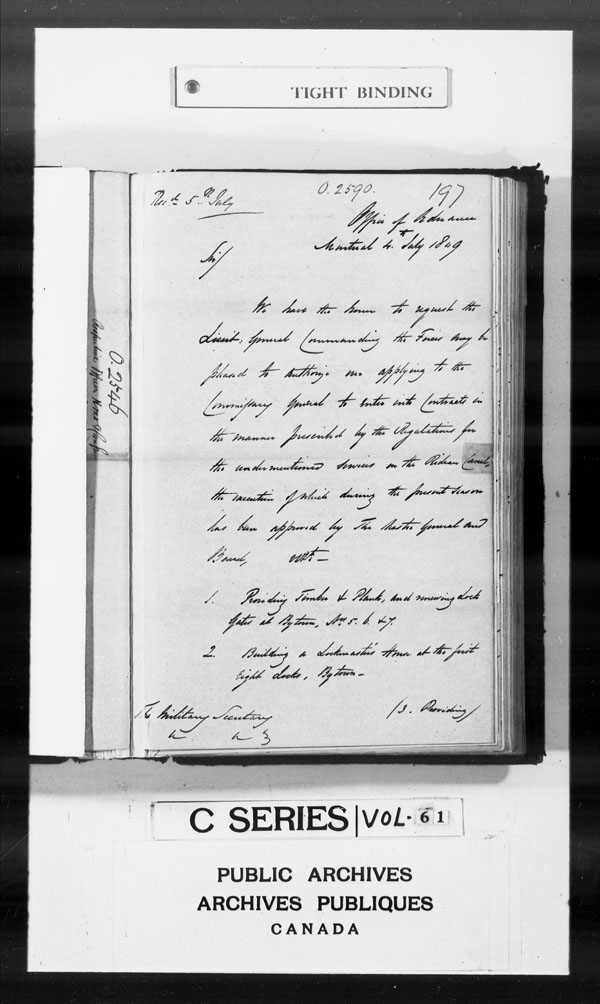 TIGHT BINDING
Rec'd. 5th July
O.2590.
197
Office of Ordnance
Montreal 4th July 1849
Sir/
We have the honor to request the
Lieut. General Commanding the Forces may be
pleased to authorize our applying to the
Commissary General to enter into Contracts in
the manner prescribed by the Regulations for
the undermentioned services on the Rideau Canal,
the execution of which during the present season
has been approved by The Master General and
Board, vizt. —
1. Providing Timber & Plank, and renewing Lock
Gates at Bytown, Nos 5. 6. & 7.
2. Building a Lockmaster's House at the first
Eight Locks, Bytown —
The Military Secretary
/3. Providing/
O.2546
C SERIES VOL. 61
PUBLIC ARCHIVES
ARCHIVES PUBLIQUES
CANADA